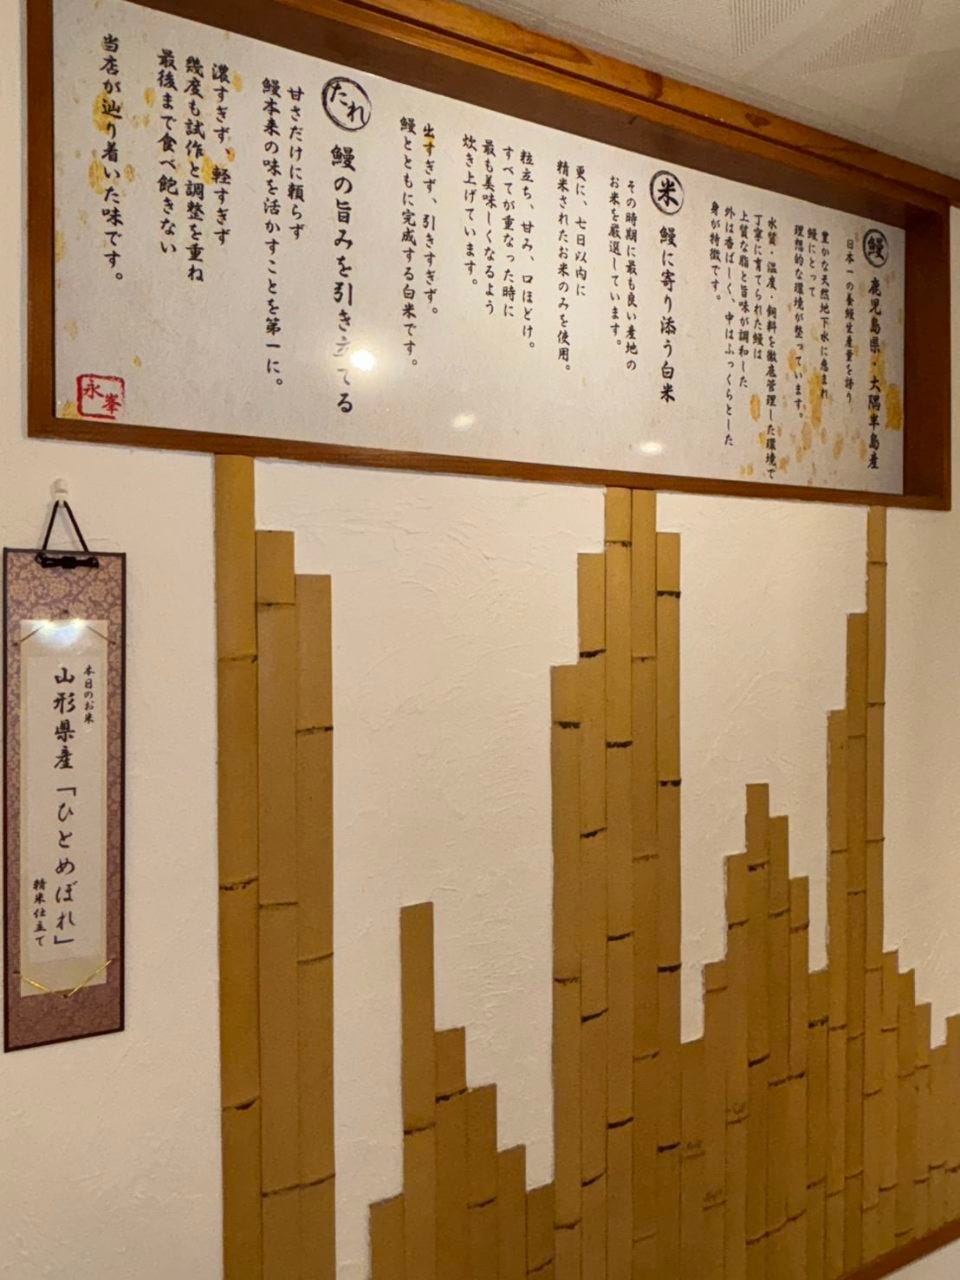 鰻
鹿児島県・大隅半島産
日本一の養鰻生産量を誇り
豊かな天然地下水に恵まれ
鰻にとって
理想的な環境が整っています。
水質・温度・飼料を徹底管理した環境で
丁寧に育てられた鰻は
上質な脂と旨味が調和した
外は香ばしく、中はふっくらとした
身が特徴です。
米
鰻に寄り添う白米
その時期に最も良い産地の
お米を厳選しています。
更に、七日以内に
精米されたお米のみを使用。
粒立ち、甘み、口ほどけ。
すべてが重なった時に
最も美味しくなるよう
炊き上げています。
出すぎず、引きすぎず。
鰻とともに完成する白米です。
たれ
鰻の旨みを引き立てる
甘さだけに頼らず
鰻本来の味を活かすことを第一に。
濃すぎず、軽すぎず
幾度も試作と調整を重ね
最後まで食べ飽きない
当店が辿り着いた味です。
永峯
本日のお米
山形県産「ひとめぼれ」
精米仕立て